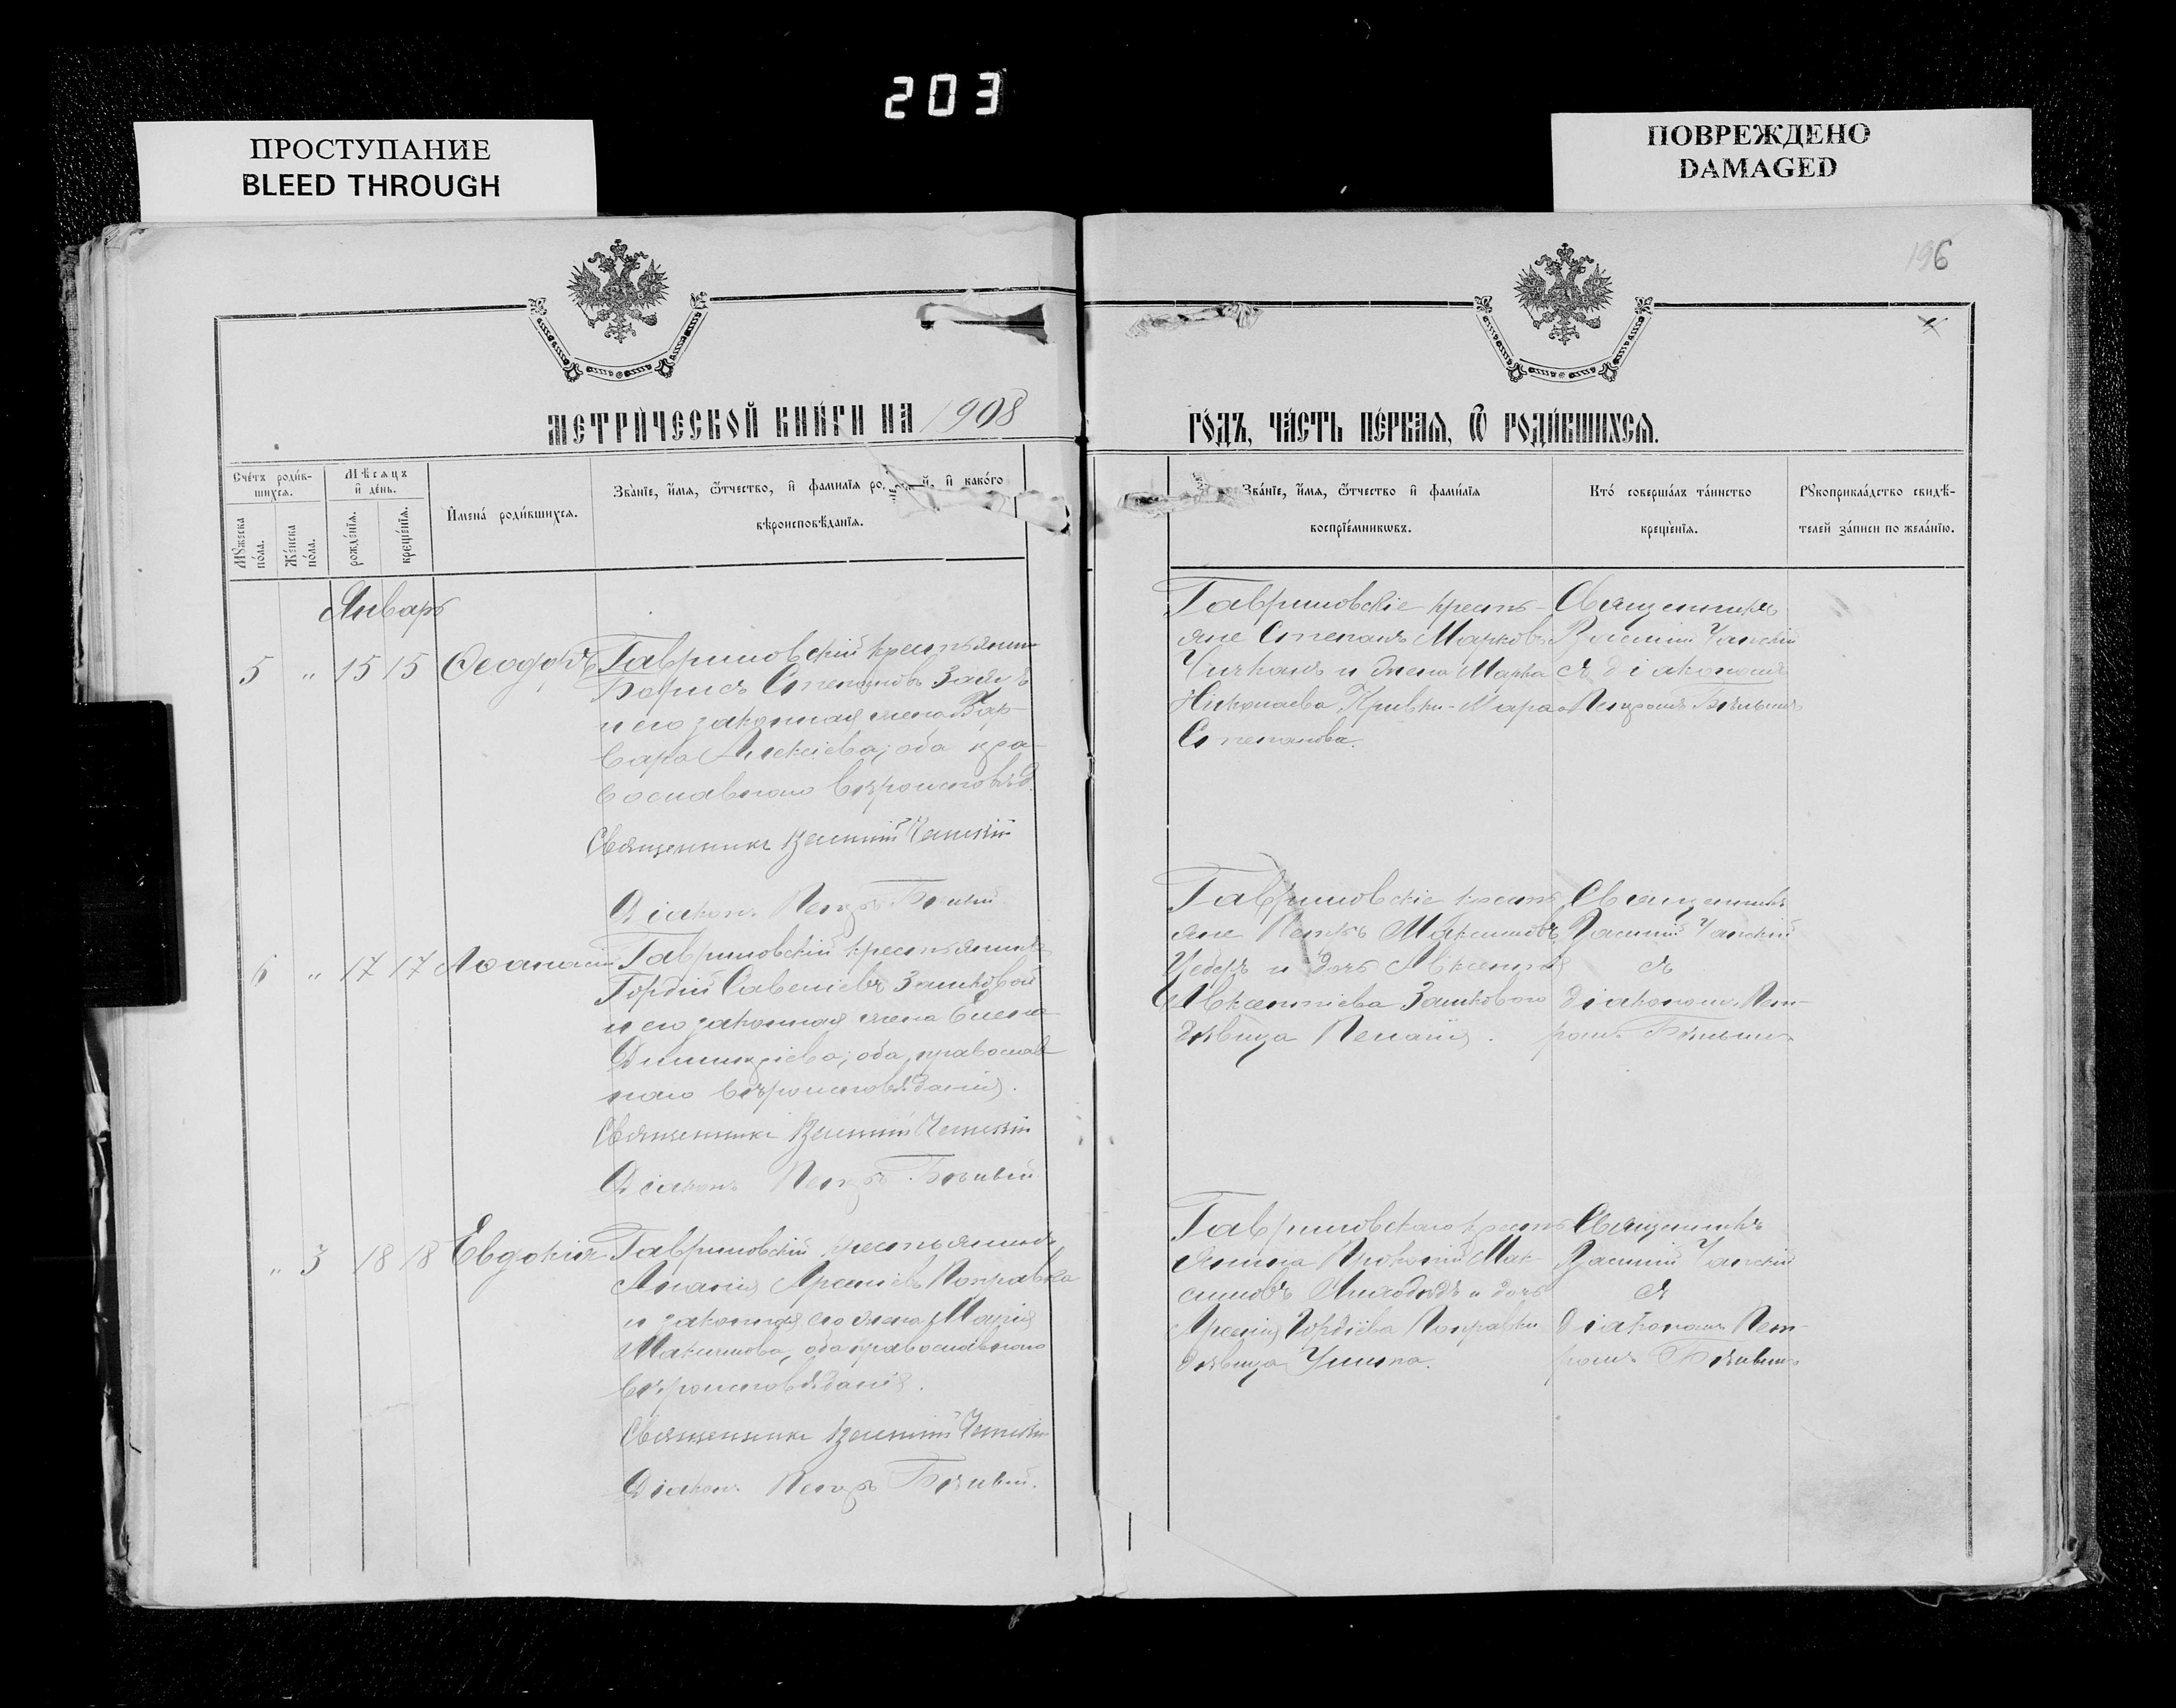 203
ПРОСТУПАНИЕ
BLEED THROUGH
ПОВРЕЖДЕНО
DAMAGED
196
МЕТРИ́ЧЕСКОЙ КНИ́ГИ НА 1908
ГО́ДЪ, ЧА́СТЬ ПЕ́РВАѦ, Ѿ РОДИ́ВШИХСѦ.
Сче́тъ роди́в-
шихсѧ.
Мꙋжеска по́ла.
Же́нска по́ла.
Мѣсѧцъ и де́нь.
рожде́нїѧ.
креще́нїѧ.
Имена́ роди́вшихсѧ.
Зва́нїе, и́мѧ, ѻ́тчество, и фами́лїѧ и како́го
вѣроисповѣ́данїѧ.
Зва́нїе, и́мѧ, ѻ́тчество и фами́лїѧ
воспрїе́мникѡвъ.
Кто́ соверша́лъ та́инство
креще́нїѧ.
Рꙋкоприкла́дство свидѣ́-
телей за́писи по жела́нїю.
Январь
5 " 15 15 Ѳеодоръ
Гавришовскій крестьянин
Борисъ Степановъ
и его законная жена Вар-
вара Алексіева; оба пра-
вославнаго вѣроисповѣд.
Священникъ Василій
Діаконъ Петръ Бѣлый
Гавришовскіе кресть-
яне Степанъ Марковъ
и жена Марка
Николаева Кривки-
Степанова.
Священникъ
Василій
съ діакономъ
Петромъ Бѣлымъ
6 " 17 17 Аѳанасій
Гавришовскій крестьянинъ
Гордій Савеліевъ Зашковой
и его законная жена Елена
Димитріева; оба православ-
наго вѣроисповѣданія.
Священникъ Василій
Діаконъ Петръ Бѣлый
Гавришовскіе кресть-
яне Петръ Максимовъ
и дочь Авксентія
Авксентіева Зашковаго
дѣвица Пелагія.
Священникъ
Василій
съ
діакономъ Пет-
ромъ Бѣлымъ
" 3 18 18 Евдокія
Гавришовскій крестьянинъ
Ананія Арсеніевъ Поправка
и законная его жена Марія
Максимова, оба православнаго
вѣроисповѣданія.
Священникъ Василій
Діаконъ Петръ Бѣлый.
Гавришовскаго кресть-
янина Прокопій Мак-
симовъ и дочь
Арсенія Гордіева Поправки
дѣвица Уліяна.
Священникъ
Василій
съ
діакономъ Пет-
ромъ Бѣлымъ